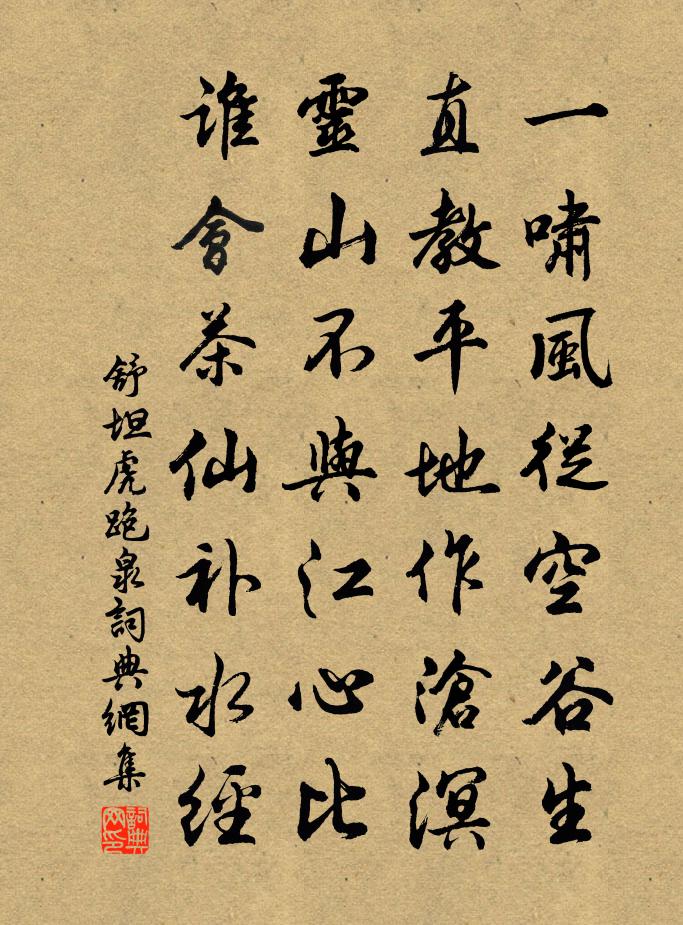 一嘯風從空谷生
直教平地作滄溟
靈山不與江心比
誰會茶仙补水經
舒坦虎跑泉詞典網集
詞典网印